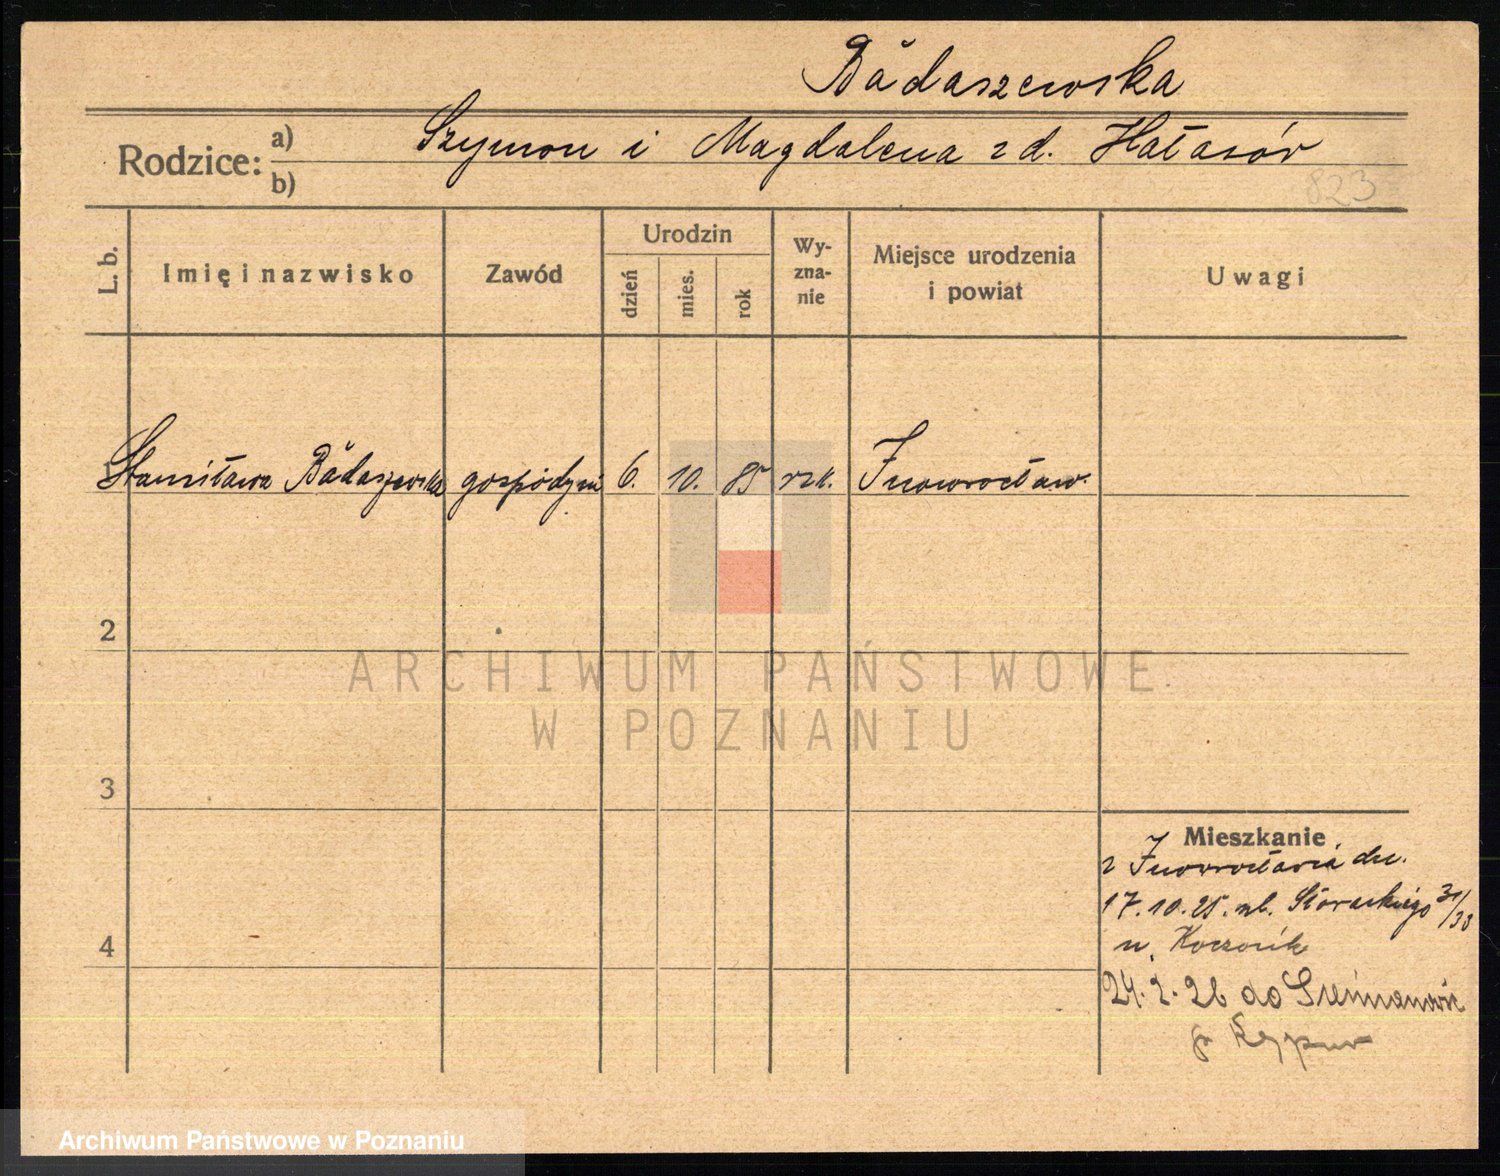 Bădaszewska
Rodzice: a) Szymon i Magdalena z d. Hałasór
b)
823
L. b.
Imię i nazwisko
Zawód
Urodzin
dzień
mies.
rok
Wy-
zna-
nie
Miejsce urodzenia
i powiat
Uwagi
1 Stanisława Bădaszewska gospodyni 6. 10. 85 rzk. Inowrocław.
2
ARCHIWUM PAŃSTWOWE
W POZNANIU
3
Mieszkanie
z Inowrocławia dn.
17.10.25. ul. Słowackiego 31/33
u.
4
24.2.26 do
Archiwum Państwowe w Poznaniu